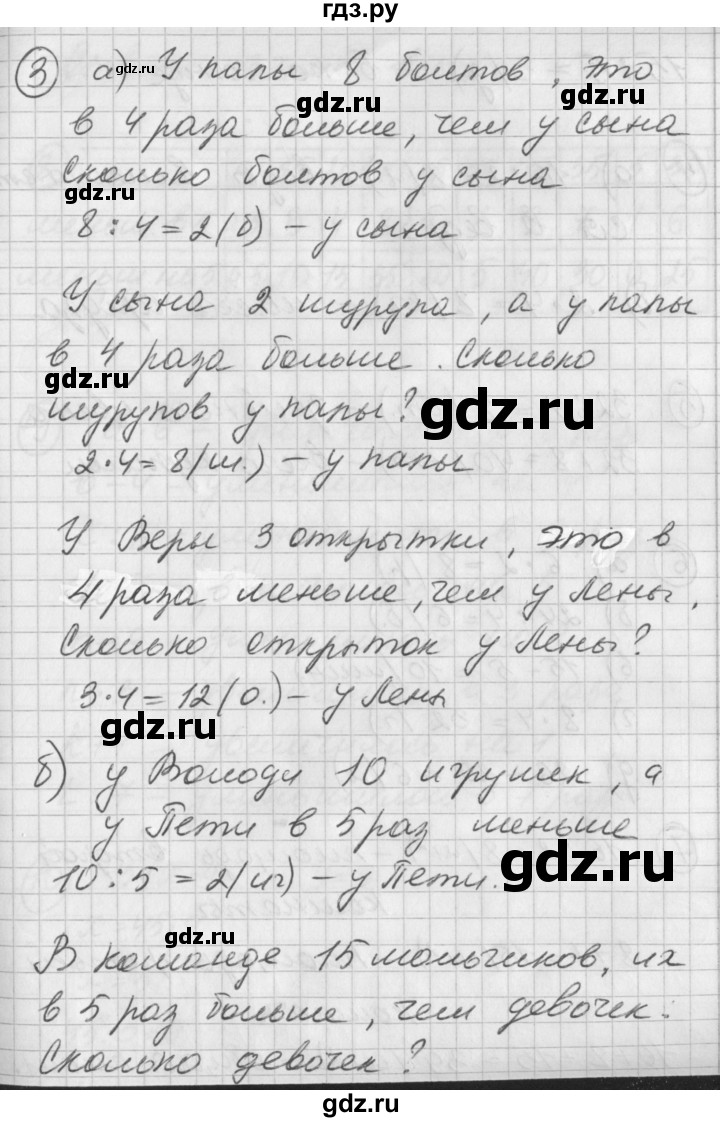 гдз.ру
3 а) У папы 8 болтов, это
gdz.ru
gdz.ru
в 4 раза больше, чем у сына
Сколько болтов у сына
gdz.ru
gdz.ru
8 : 4 = 2 (б) – у сына
У сына 2 шурупа, а у папы
в 4 раза больше. Сколько
gdz.ru
шурупов у папы?
gdz.ru
2 · 4 = 8 (ш.) – у папы
У Веры 3 открытки, это в
4 раза меньше, чем у Лены.
Сколько открыток у Лены?
3 · 4 = 12 (о.) – у Лены
gdz.ru
б) у Володи 10 игрушек, а
у Пети в 5 раз меньше
10 : 5 = 2 (иг) – у Пети.
gdz.ru
gdz.ru
В команде 15 мальчиков, их
в 5 раз больше, чем девочек.
Сколько девочек?
gdz.ru